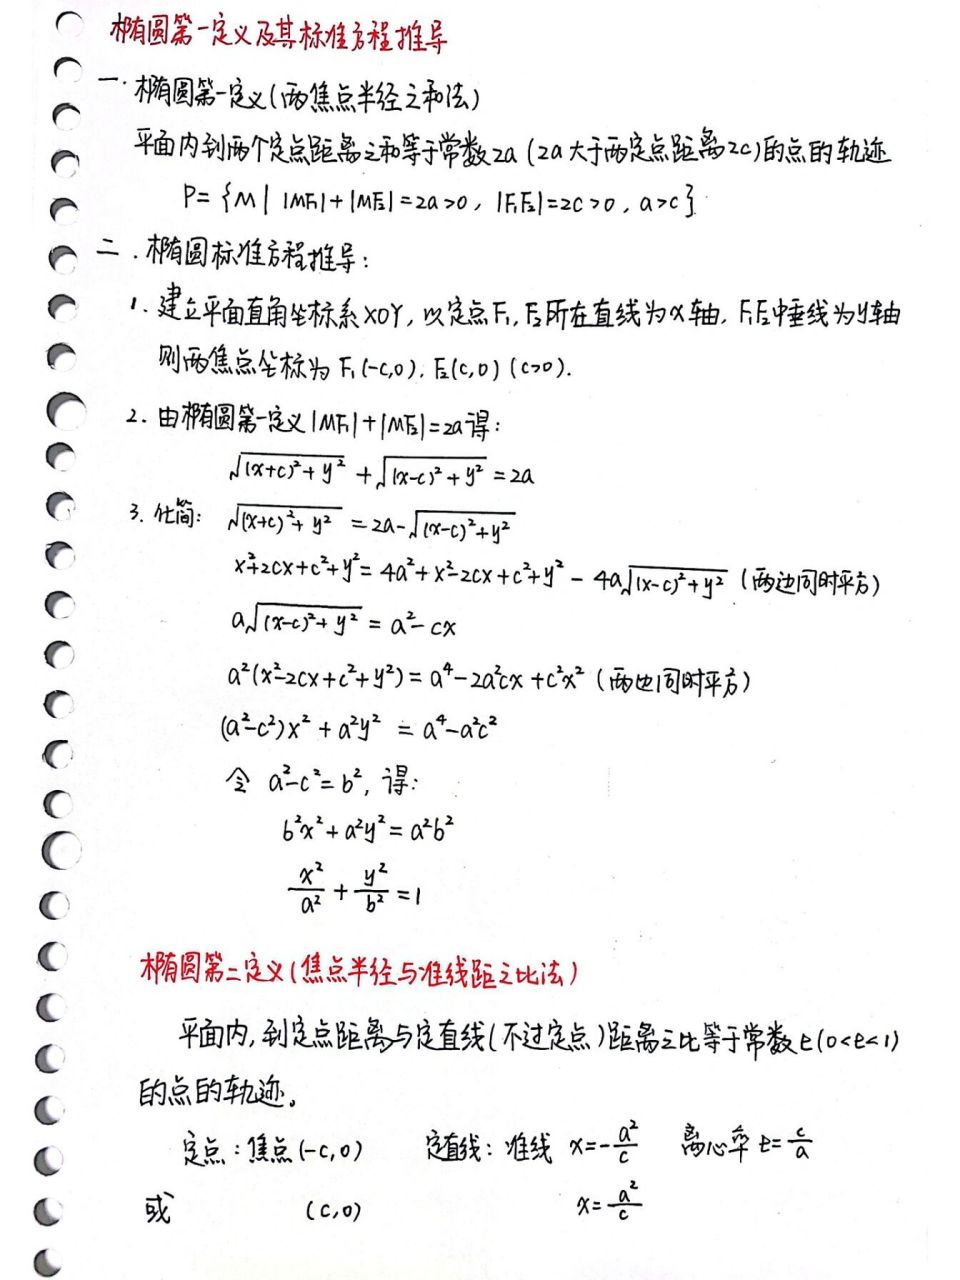 椭圆第一定义及其标准方程推导
一.椭圆第一定义(两焦点半径之和法)
平面内到两个定点距离之和等于常数2a(2a大于两定点距离2c)的点的轨迹
P={M| |MF₁|+|MF₂|=2a>0, |F₁F₂|=2c>0, a>c}
二.椭圆标准方程推导:
1.建立平面直角坐标系XOY,以定点F₁,F₂所在直线为x轴,F₁F₂中垂线为y轴
则两焦点坐标为F₁(-c,0),F₂(c,0)(c>0).
2.由椭圆第一定义|MF₁|+|MF₂|=2a得:
√((x+c)²+y²) + √((x-c)²+y²) = 2a
3.化简: √((x+c)²+y²) = 2a-√((x-c)²+y²)
x²+2cx+c²+y²=4a²+x²-2cx+c²+y²-4a√((x-c)²+y²) (两边同时平方)
a√((x-c)²+y²) = a²-cx
a²(x²-2cx+c²+y²)=a⁴-2a²cx+c²x² (两边同时平方)
(a²-c²)x²+a²y² = a⁴-a²c²
令 a²-c²=b²,得:
b²x²+a²y²=a²b²
x²/a² + y²/b² = 1
椭圆第二定义(焦点半径与准线距之比法)
平面内,到定点距离与定直线(不过定点)距离之比等于常数e(0<e<1)
的点的轨迹。
定点:焦点(-c,0) 定直线:准线 x=-a²/c 离心率 e=c/a
或 (c,0) x=a²/c